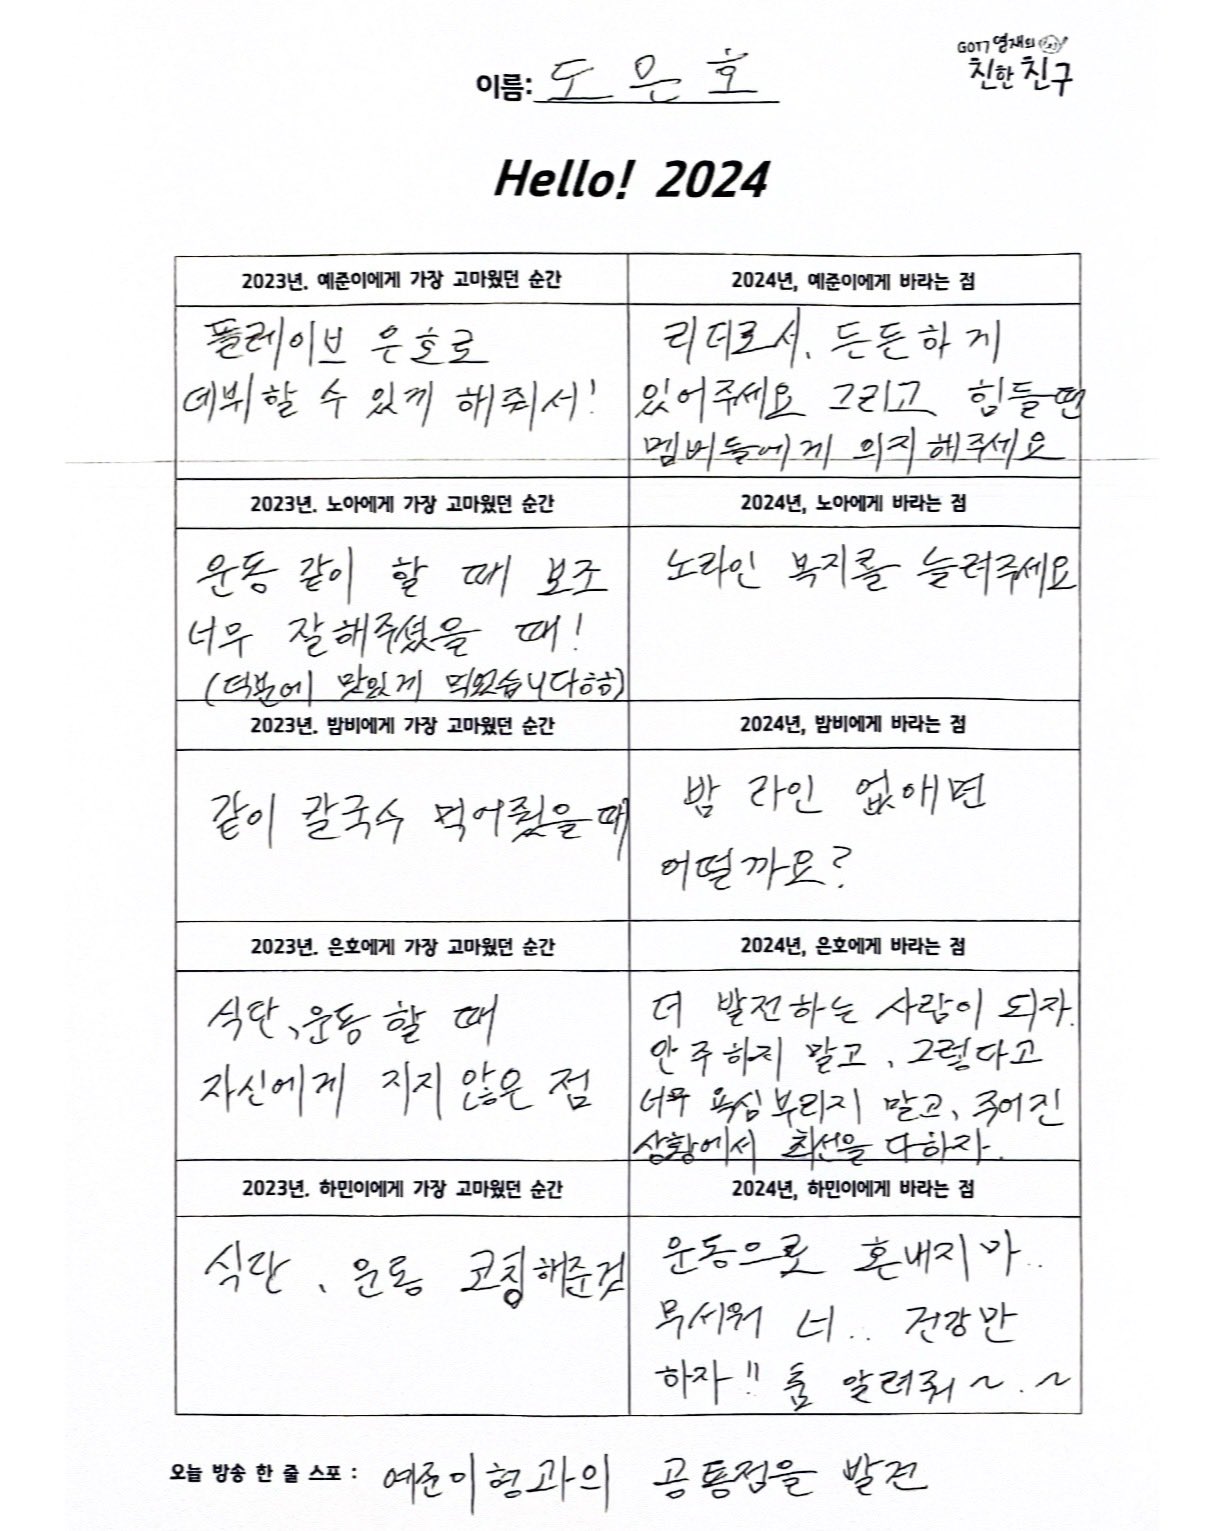 GOT7 영재의
친한 친구
이름: 도은호
Hello! 2024
2023년. 예준이에게 가장 고마웠던 순간
플레이브 은호로
데뷔할 수 있게 해줘서!
2024년, 예준이에게 바라는 점
리더로서. 든든하게
있어주세요 그리고 힘들면
멤버들에게 의지해주세요
2023년. 노아에게 가장 고마웠던 순간
운동 같이 할 때 보조
너무 잘해주셨을 때!
(덕분에 맛있게 먹었습니다ㅎㅎ)
2024년, 노아에게 바라는 점
노라인 복지를 늘려주세요
2023년. 밤비에게 가장 고마웠던 순간
같이 칼국수 먹어줬을때
2024년, 밤비에게 바라는 점
밤 라인 없애면
어떨까요?
2023년. 은호에게 가장 고마웠던 순간
식단、운동 할 때
자신에게 지지 않은 점
2024년, 은호에게 바라는 점
더 발전하는 사람이 되자.
안주하지 말고、그렇다고
너무 욕심부리지 말고、주어진
상황에서 최선을 다하자.
2023년. 하민이에게 가장 고마웠던 순간
식단、운동 코칭해준것
2024년, 하민이에게 바라는 점
운동으로 혼내지마..
무서워 너.. 건강만
하자!! 춤 알려줘~.~
오늘 방송 한 줄 스포 : 예준이형과의 공통점을 발견